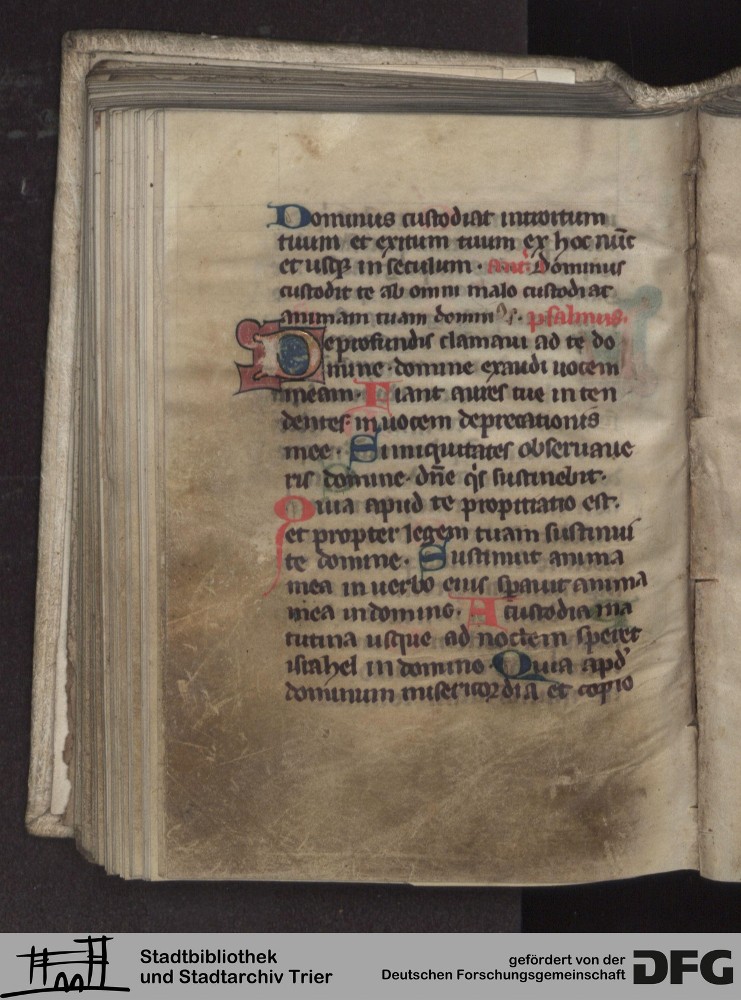 Dominus custodiat introitum
tuum et exitum tuum ex hoc nūc
et usq in seculum. ant Dominus
custodit te ab omni malo custodiat
animam tuam dominus. psalmus.
De profundis clamaui ad te do
mine. domine exaudi uocem
meam. Fiant aures tue in ten
dentes in uocem deprecationis
mee. Si iniquitates obseruaue
ris domine. dn̄e q's sustinebit.
Quia apud te propitiatio est.
et propter legem tuam sustinui
te domine. Sustinuit anima
mea in uerbo eius sperauit anima
mea in domino. A custodia ma
tutina usque ad noctem speret
israhel in domino Quia apd'
dominum misericordia et copio
Stadtbibliothek
und Stadtarchiv Trier
gefördert von der
Deutschen Forschungsgemeinschaft
DFG